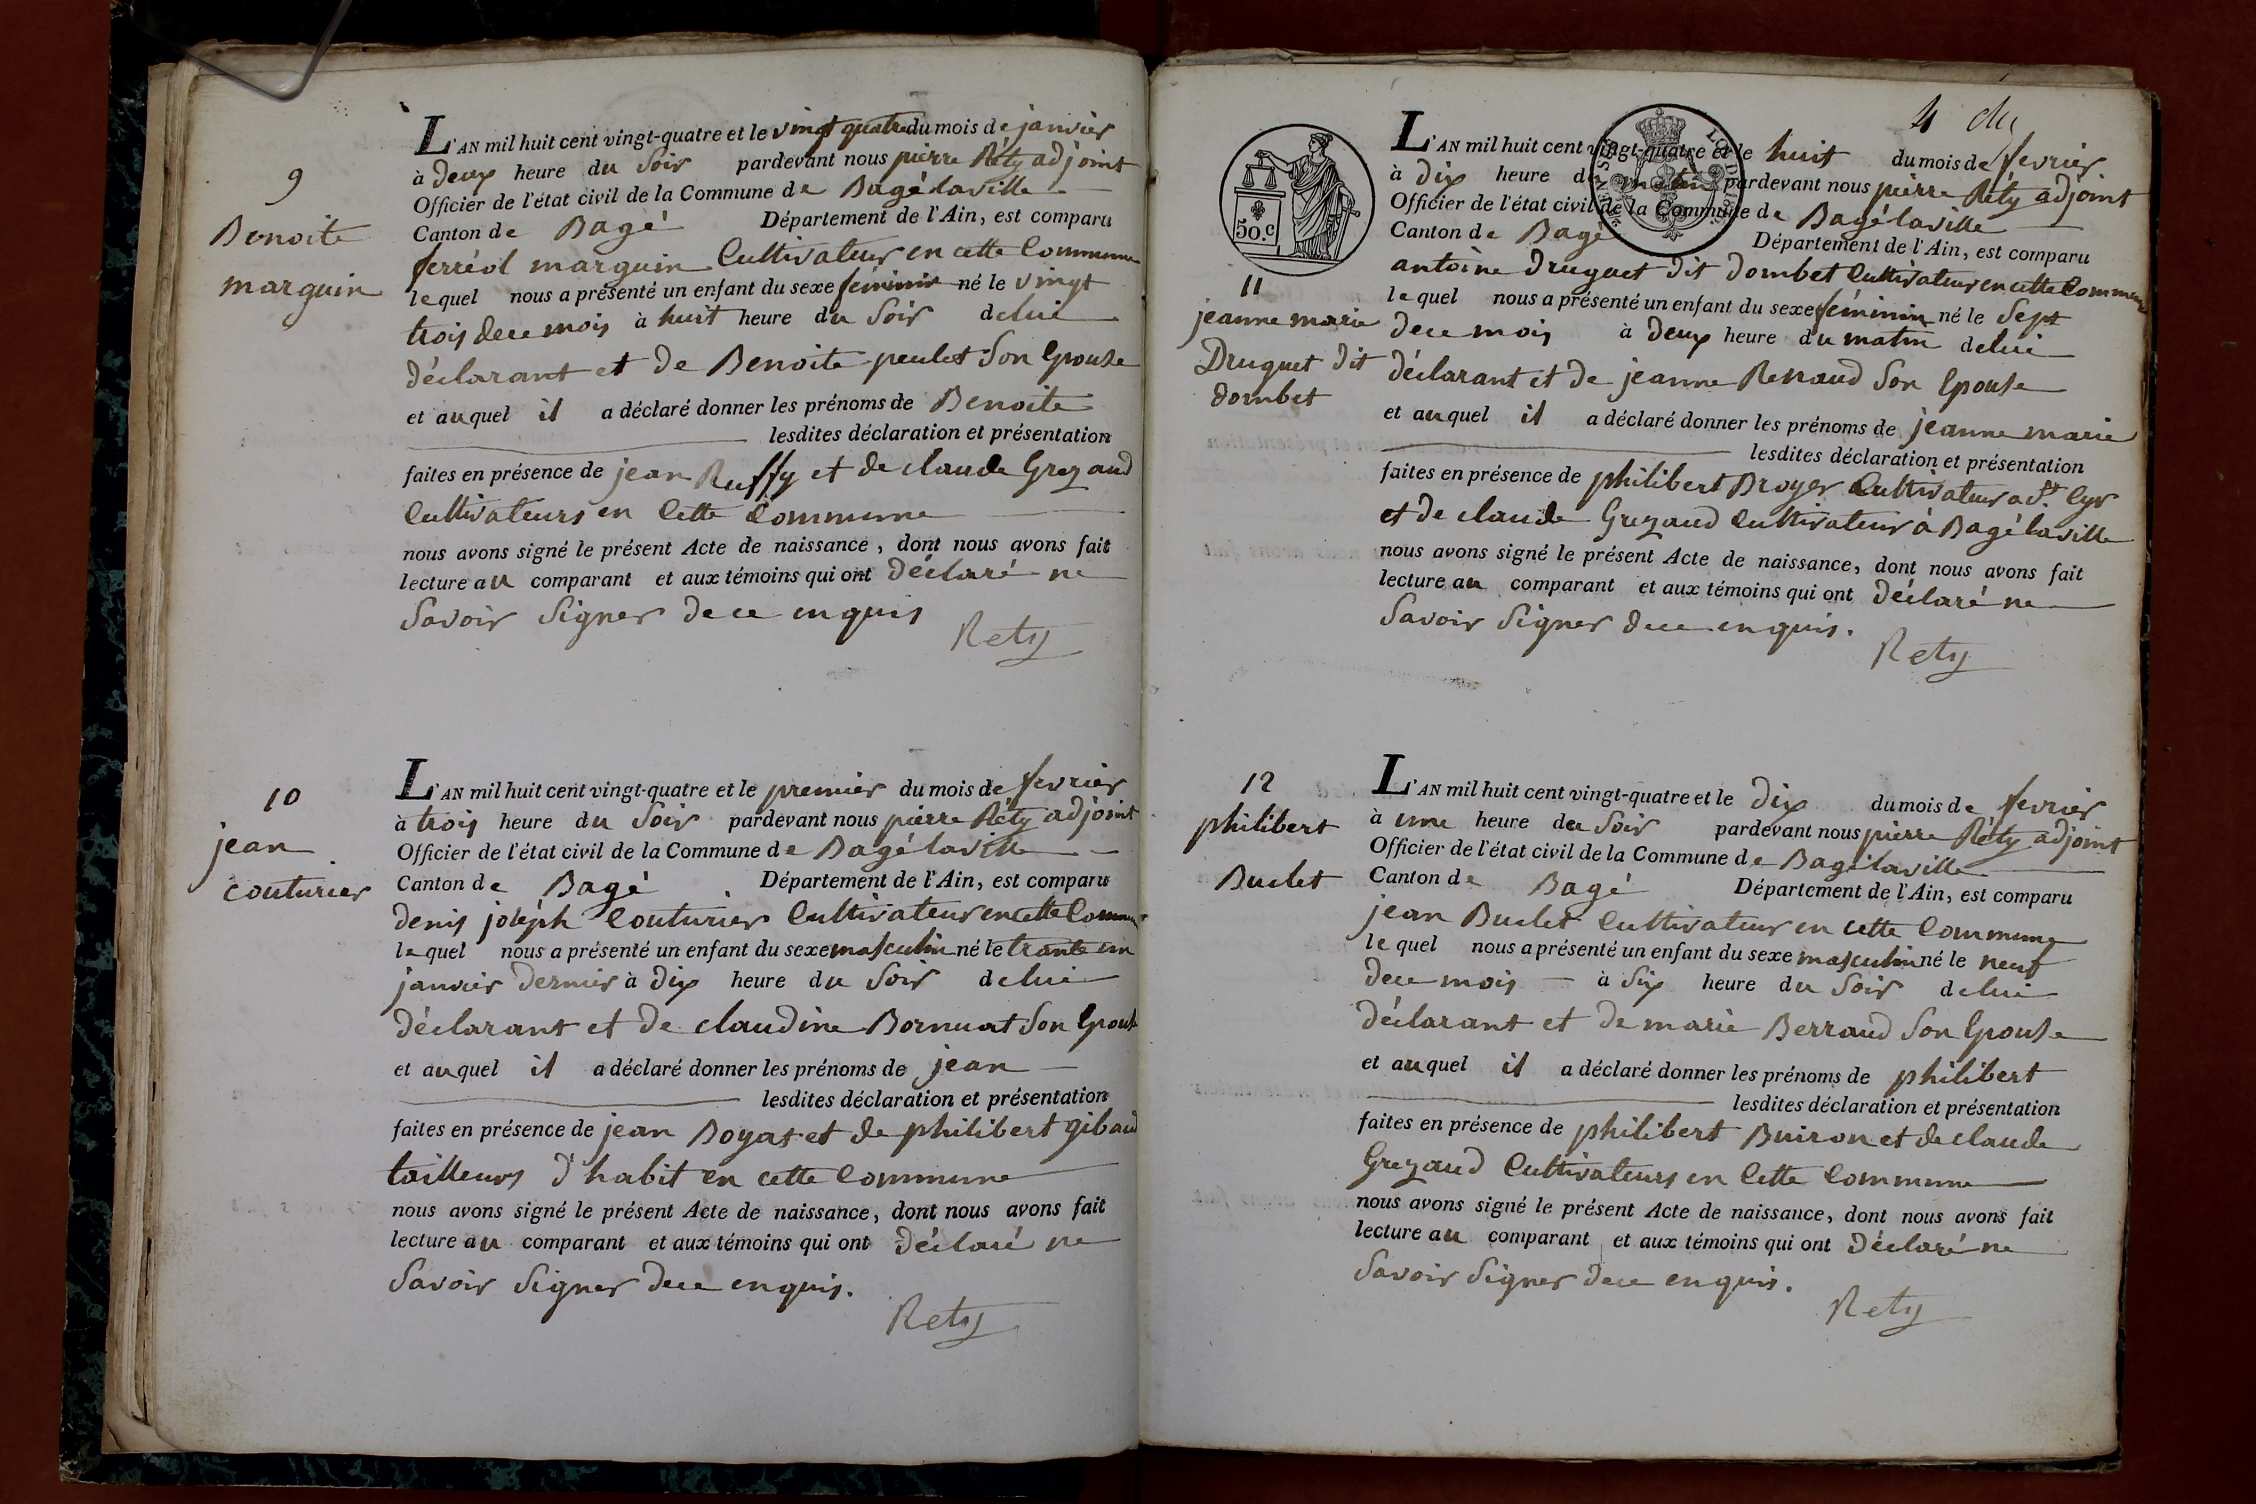 9
Benoite
marguin
L'AN mil huit cent vingt-quatre et le vingt quatre du mois de janvier
à deux heure du Soir pardevant nous pierre Réty adjoint
Officier de l'état civil de la Commune de Bagé laville
Canton de Bagé Département de l'Ain, est comparu
ferréol marguin Cultivateur en cette Commune
lequel nous a présenté un enfant du sexe féminin né le vingt
trois dece mois à huit heure du Soir delui
déclarant et de Benoite peulet Son Epouse
et auquel il a déclaré donner les prénoms de Benoite
lesdites déclaration et présentation
faites en présence de jean Ruffy et de claude Grezaud
Cultivateurs en Cette Commune
nous avons signé le présent Acte de naissance, dont nous avons fait
lecture au comparant et aux témoins qui ont déclaré ne
Savoir Signer dece enquis
Rety
10
jean
couturier
L'AN mil huit cent vingt-quatre et le premier du mois de fevrier
à trois heure du Soir pardevant nous pierre Réty adjoint
Officier de l'état civil de la Commune de Bagé laville
Canton de Bagé Département de l'Ain, est comparu
denis joseph Couturier Cultivateur en cette Commune
lequel nous a présenté un enfant du sexe masculin né le trante un
janvier dernier à dix heure du Soir delui
déclarant et de claudine Bornuat Son Epouse
et auquel il a déclaré donner les prénoms de jean
lesdites déclaration et présentation
faites en présence de jean Boyat et de philibert gibaud
tailleurs d'habit en cette Commune
nous avons signé le présent Acte de naissance, dont nous avons fait
lecture au comparant et aux témoins qui ont déclaré ne
Savoir Signer dece enquis.
Rety
4
50.c
11
jeanne marie
Druguet dit
dombet
L'AN mil huit cent vingt-quatre et le huit du mois de fevrier
à dix heure du matin pardevant nous pierre Réty adjoint
Officier de l'état civil de la Commune de Bagé laville
Canton de Bagé Département de l'Ain, est comparu
antoine Druguet dit dombet Cultivateur en cette Commune
lequel nous a présenté un enfant du sexe féminin né le Sept
dece mois à deux heure du matin delui
déclarant et de jeanne Renaud Son Epouse
et auquel il a déclaré donner les prénoms de jeanne marie
lesdites déclaration et présentation
faites en présence de philibert Broyer Cultivateur a St. Cyr
et de claude Grezaud Cultivateur à Bagé laville
nous avons signé le présent Acte de naissance, dont nous avons fait
lecture au comparant et aux témoins qui ont déclaré ne
Savoir Signer dece enquis.
Rety
12
philibert
Buclet
L'AN mil huit cent vingt-quatre et le dix du mois de fevrier
à une heure du Soir pardevant nous pierre Réty adjoint
Officier de l'état civil de la Commune de Bagé laville
Canton de Bagé Département de l'Ain, est comparu
jean Buclet Cultivateur en cette Commune
lequel nous a présenté un enfant du sexe masculin né le neuf
dece mois à Six heure du Soir delui
déclarant et de marie Berraud Son Epouse
et auquel il a déclaré donner les prénoms de philibert
lesdites déclaration et présentation
faites en présence de philibert Buiron et de claude
Grezaud Cultivateurs en Cette Commune
nous avons signé le présent Acte de naissance, dont nous avons fait
lecture au comparant et aux témoins qui ont déclaré ne
Savoir Signer dece enquis.
Rety